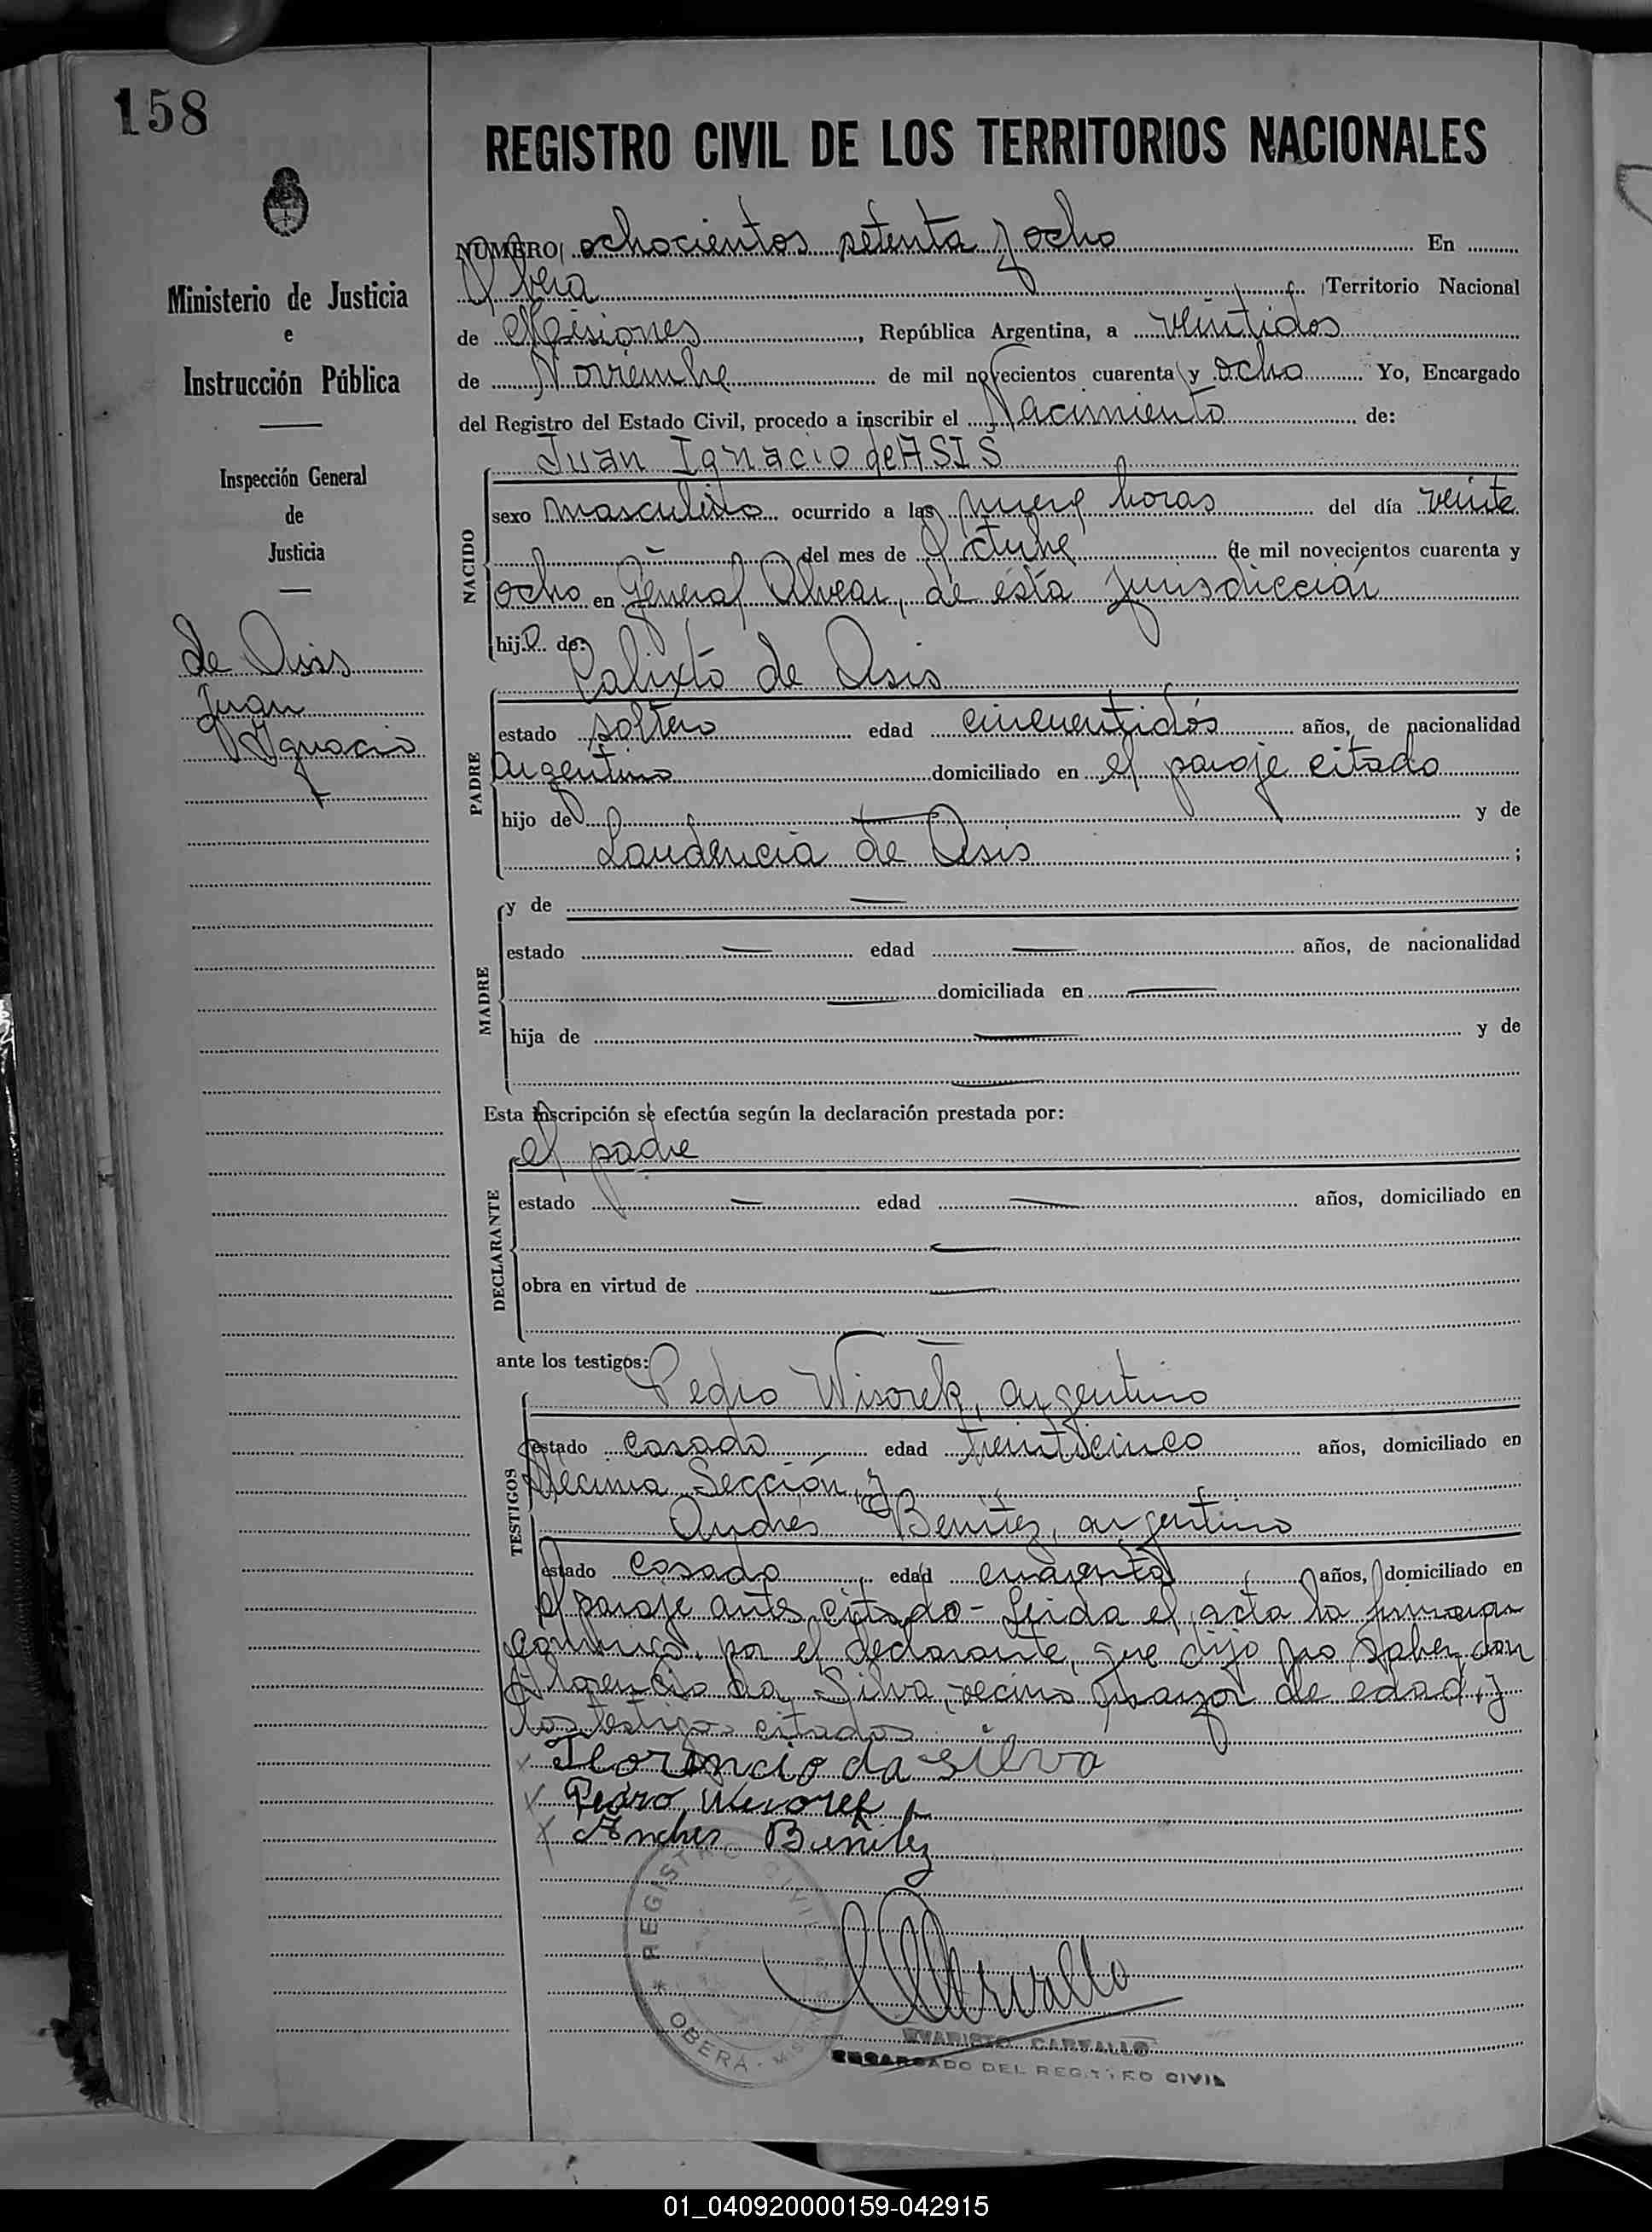 158
REGISTRO CIVIL DE LOS TERRITORIOS NACIONALES
Ministerio de Justicia
e
Instrucción Pública
Inspección General
de
Justicia
de Asis
Juan
Ignacio
NUMERO ochocientos setenta y ocho En
Oberá Territorio Nacional
de Misiones, República Argentina, a veintidos
de Noviembre de mil novecientos cuarenta y ocho Yo, Encargado
del Registro del Estado Civil, procedo a inscribir el Nacimiento de:
Juan Ignacio de ASIS
NACIDO
sexo masculino ocurrido a las nueve horas del día veinte
del mes de Octubre de mil novecientos cuarenta y
ocho en General Alvear, de ésta jurisdicción
hijo de:
Calixto de Asis
PADRE
estado soltero edad cincuentidós años, de nacionalidad
Argentino domiciliado en el paraje citado
hijo de — y de
Laudencia de Asis ;
MADRE
y de —
estado — edad — años, de nacionalidad
— domiciliada en —
hija de — y de
—
Esta inscripción se efectúa según la declaración prestada por:
el padre
DECLARANTE
estado — edad — años, domiciliado en
—
obra en virtud de —
—
ante los testigos:
Pedro Wisorek, argentino
TESTIGOS
estado casado edad treinticinco años, domiciliado en
Décima Sección, y
Andres Benitez, argentino
estado casado edad cuarenta años, domiciliado en
el paraje antes citado - Leida el acta la firman
conmigo, por el declarante, que dijo no saber, don
Florencio da Silva, vecino mayor de edad, y
los testigos citados
x Florencio da silva
x Pedro Wisorek
x Andres Benitez
REGISTRO CIVIL
* OBERÁ - MISIONES
EVARISTO CARVALLO
ENCARGADO DEL REGISTRO CIVIL
01_040920000159-042915